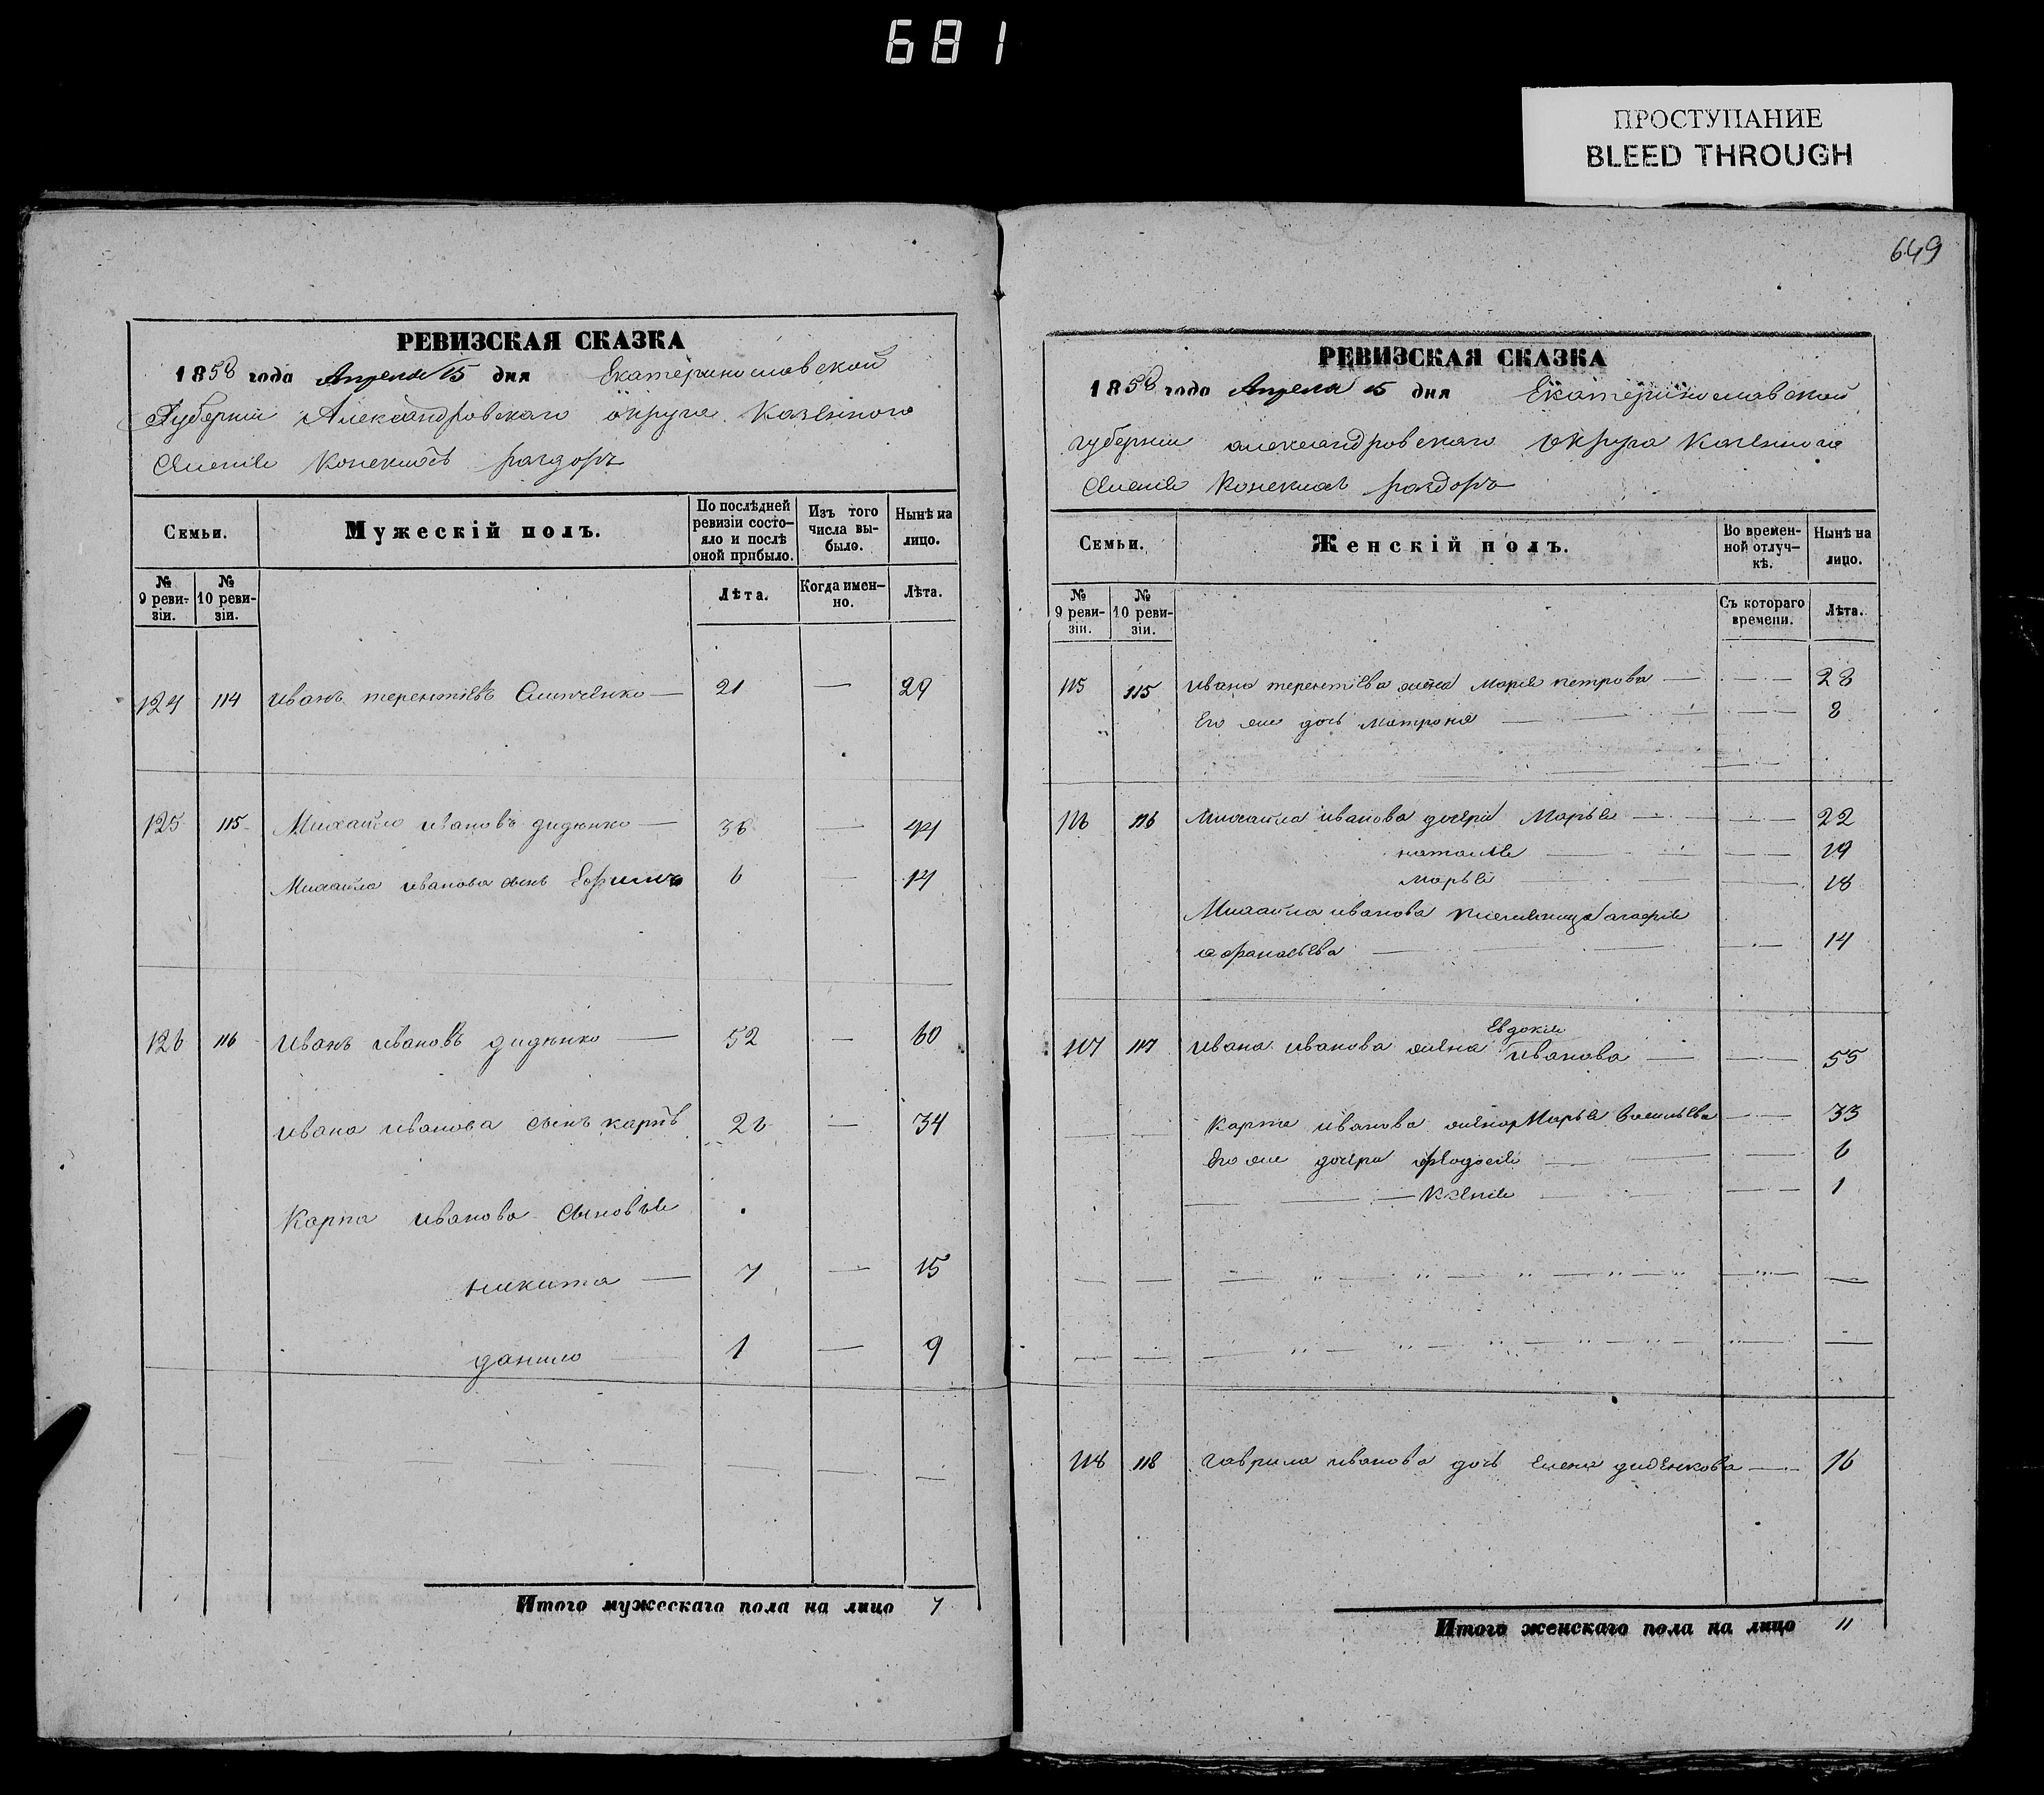 681
ПРОСТУПАНИЕ
BLEED THROUGH
РЕВИЗСКАЯ СКАЗКА
1858 года Апреля 15 дня Екатеринославской
Губернии Александровскаго округа Казенного
Селенія Конскихъ раздоръ
Семьи.
Мужескій полъ.
По послѣдней ревизіи состояло и послѣ оной прибыло.
Изъ того числа выбыло.
Нынѣ на лицо.
№ 9 ревизіи.
№ 10 ревизіи.
Лѣта.
Когда именно.
Лѣта.
124 114 Иванъ терентіевъ — 21 — 29
125 115 Михайло ивановъ дидѣнко — 36 — 44
Михайла иванова сынъ Ефимъ 6 — 14
126 116 Иванъ ивановъ дидѣнко — 52 — 60
Ивана иванова сынъ карпъ 26 — 34
Карпа иванова сыновья
никита — 7 — 15
данило — 1 — 9
Итого мужескаго пола на лицо 7
649
РЕВИЗСКАЯ СКАЗКА
1858 года Апреля 15 дня Екатеринославской
губерніи александровскаго округа Казенного
Селенія Конскихъ раздоръ
Семьи.
Женскій полъ.
Во временной отлучкѣ.
Нынѣ на лицо.
№ 9 ревизіи.
№ 10 ревизіи.
Съ котораго времени.
Лѣта.
115 115 Ивана терентіева жена Марія петрова — — 28
Его же дочь матрона — — 8
116 116 Михайла иванова дочери Марья — — 22
наталія — — 19
марья — — 18
Михайла иванова племянница агафія
афанасьева — — 14
Евдокія
117 117 Ивана иванова жена иванова — — 55
Карпа иванова жена Марья васильева — 33
Его же дочери феодосія — — 6
— Ксенія — — 1
118 118 Гаврила иванова дочь Елена диденкова — 16
Итого женскаго пола на лицо 11